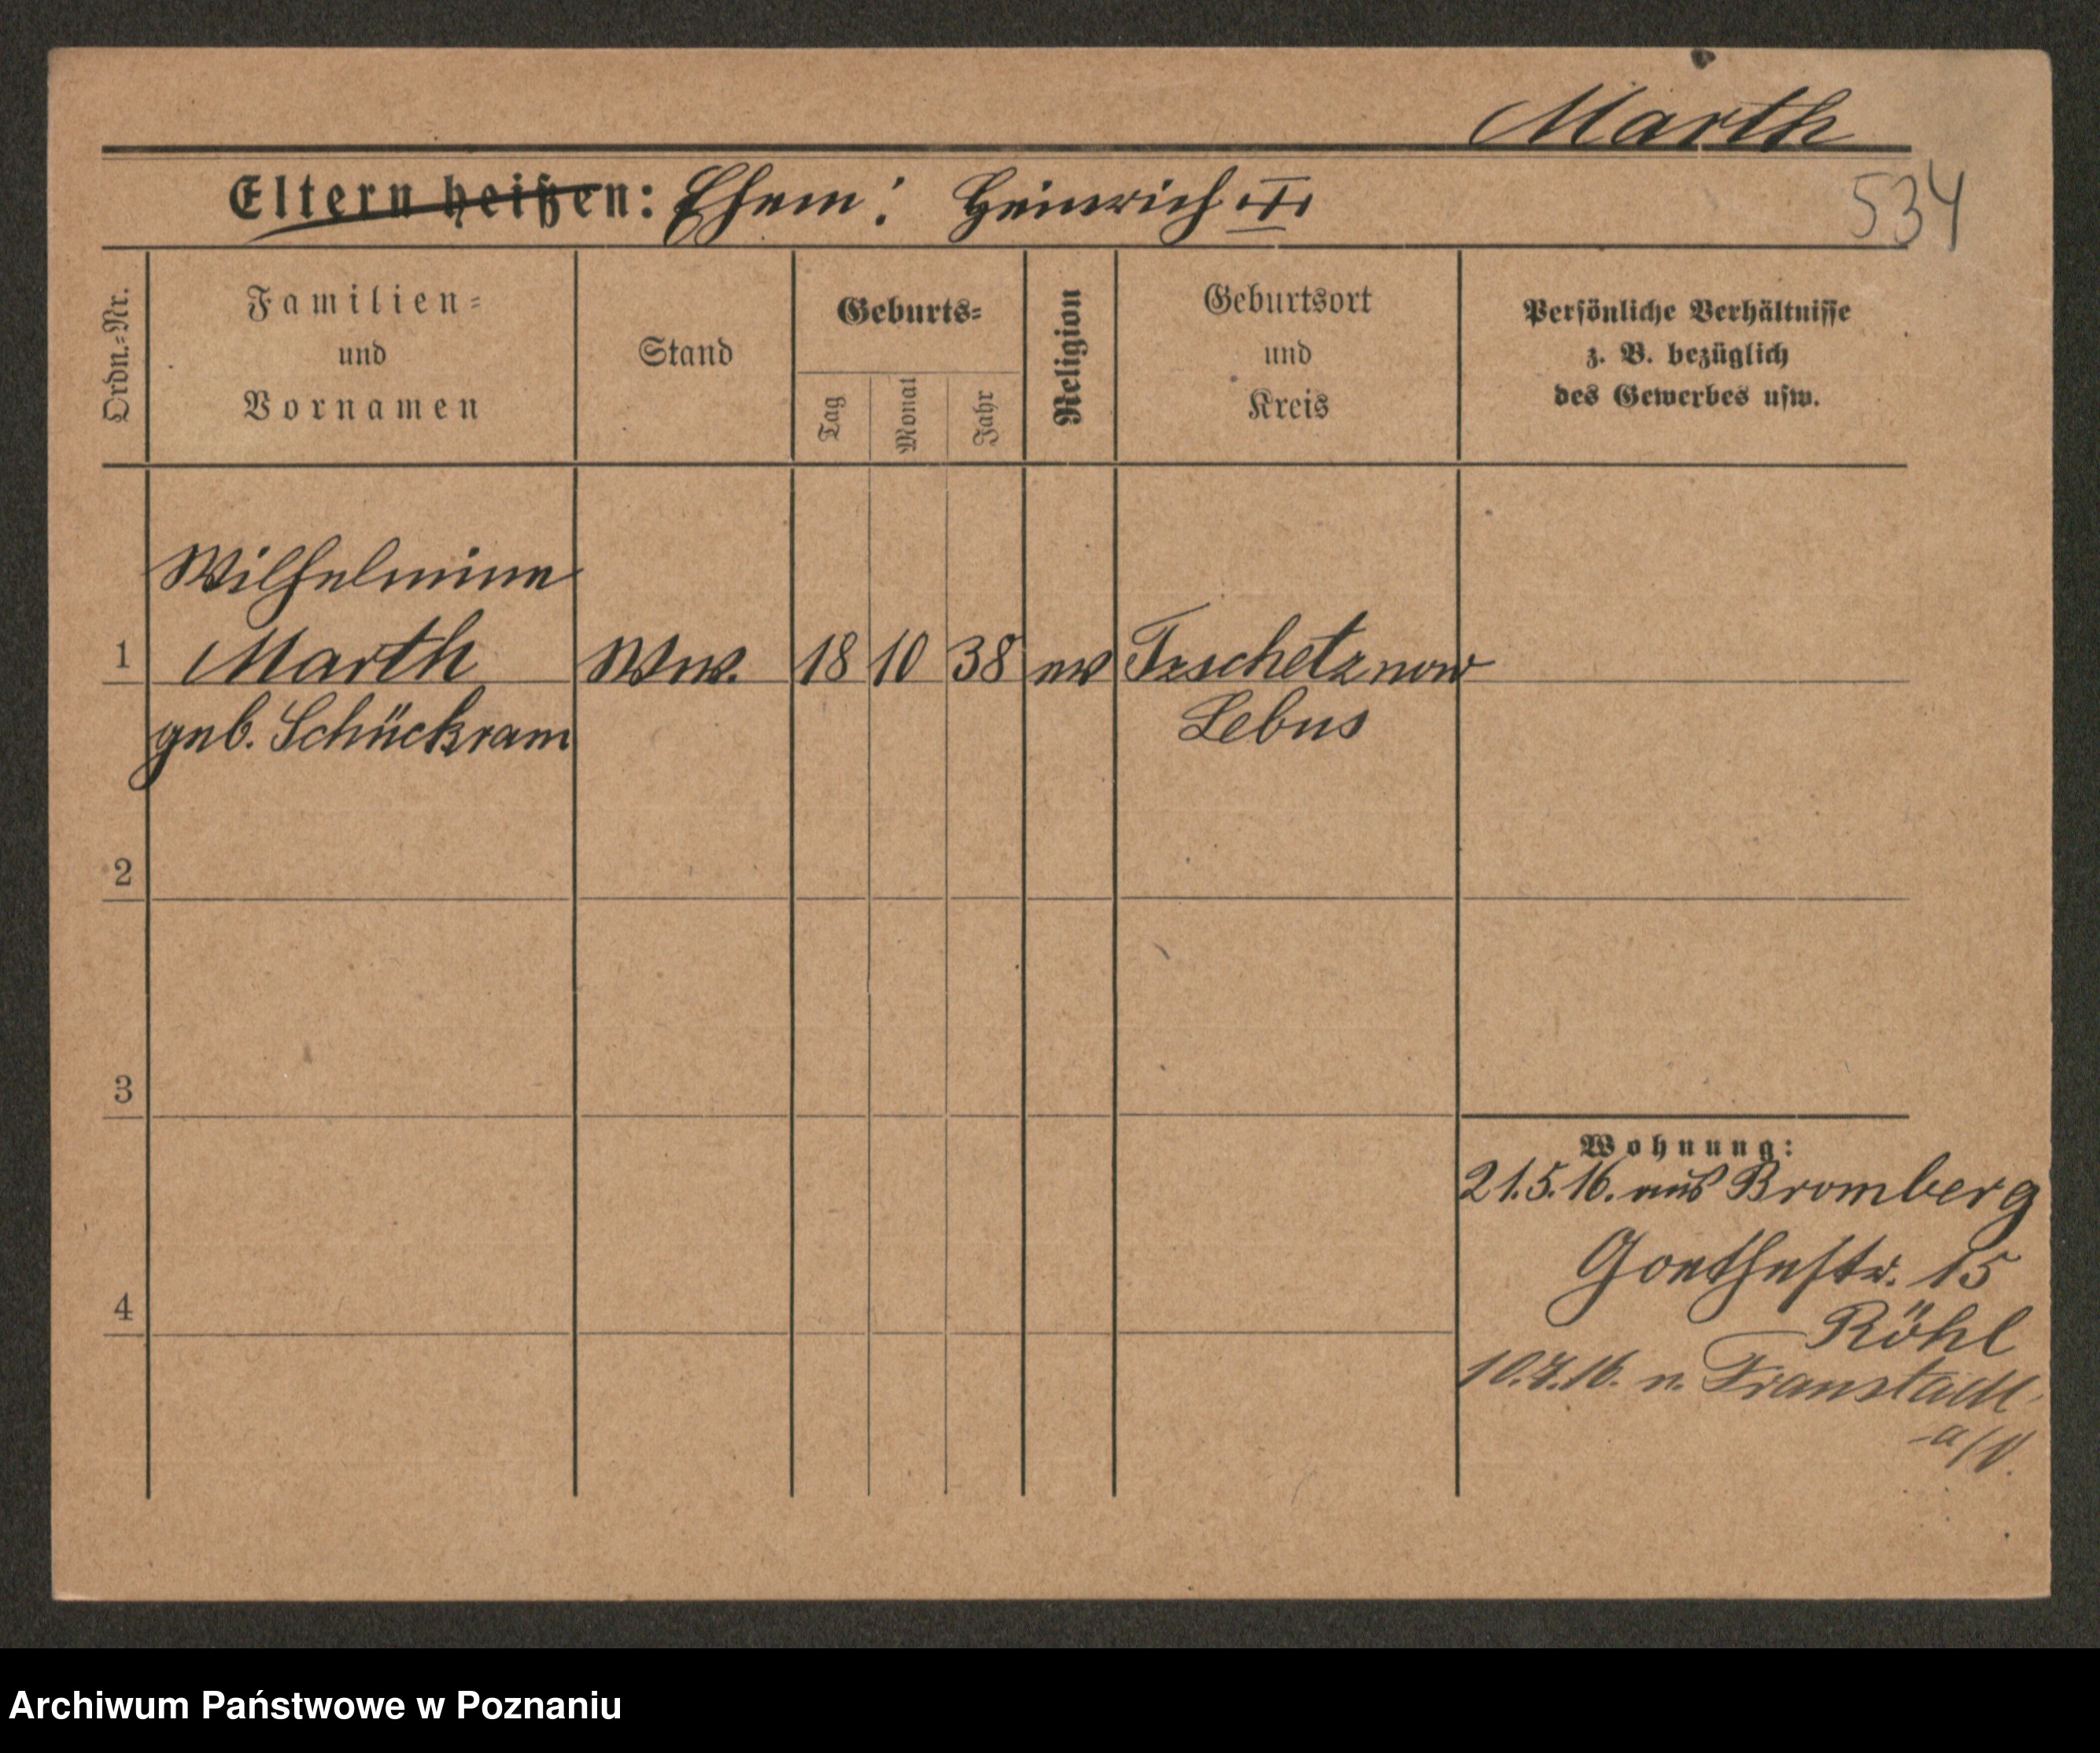 Marth
Eltern heißen: Ehem: Heinrich III
534
Ordn.-Nr.
Familien-
und
Vornamen
Stand
Geburts-
Tag
Monat
Jahr
Religion
Geburtsort
und
Kreis
Persönliche Verhältnisse
z. B. bezüglich
des Gewerbes usw.
Wilhelmine
1 Marth Ww. 18 10 38 ev Tzschetznow
geb. Schückram Lebus
2
3
Wohnung:
21.5.16. aus Bromberg
Goethestr. 15
4
Röhl
10.7.16. n. Fraustadt